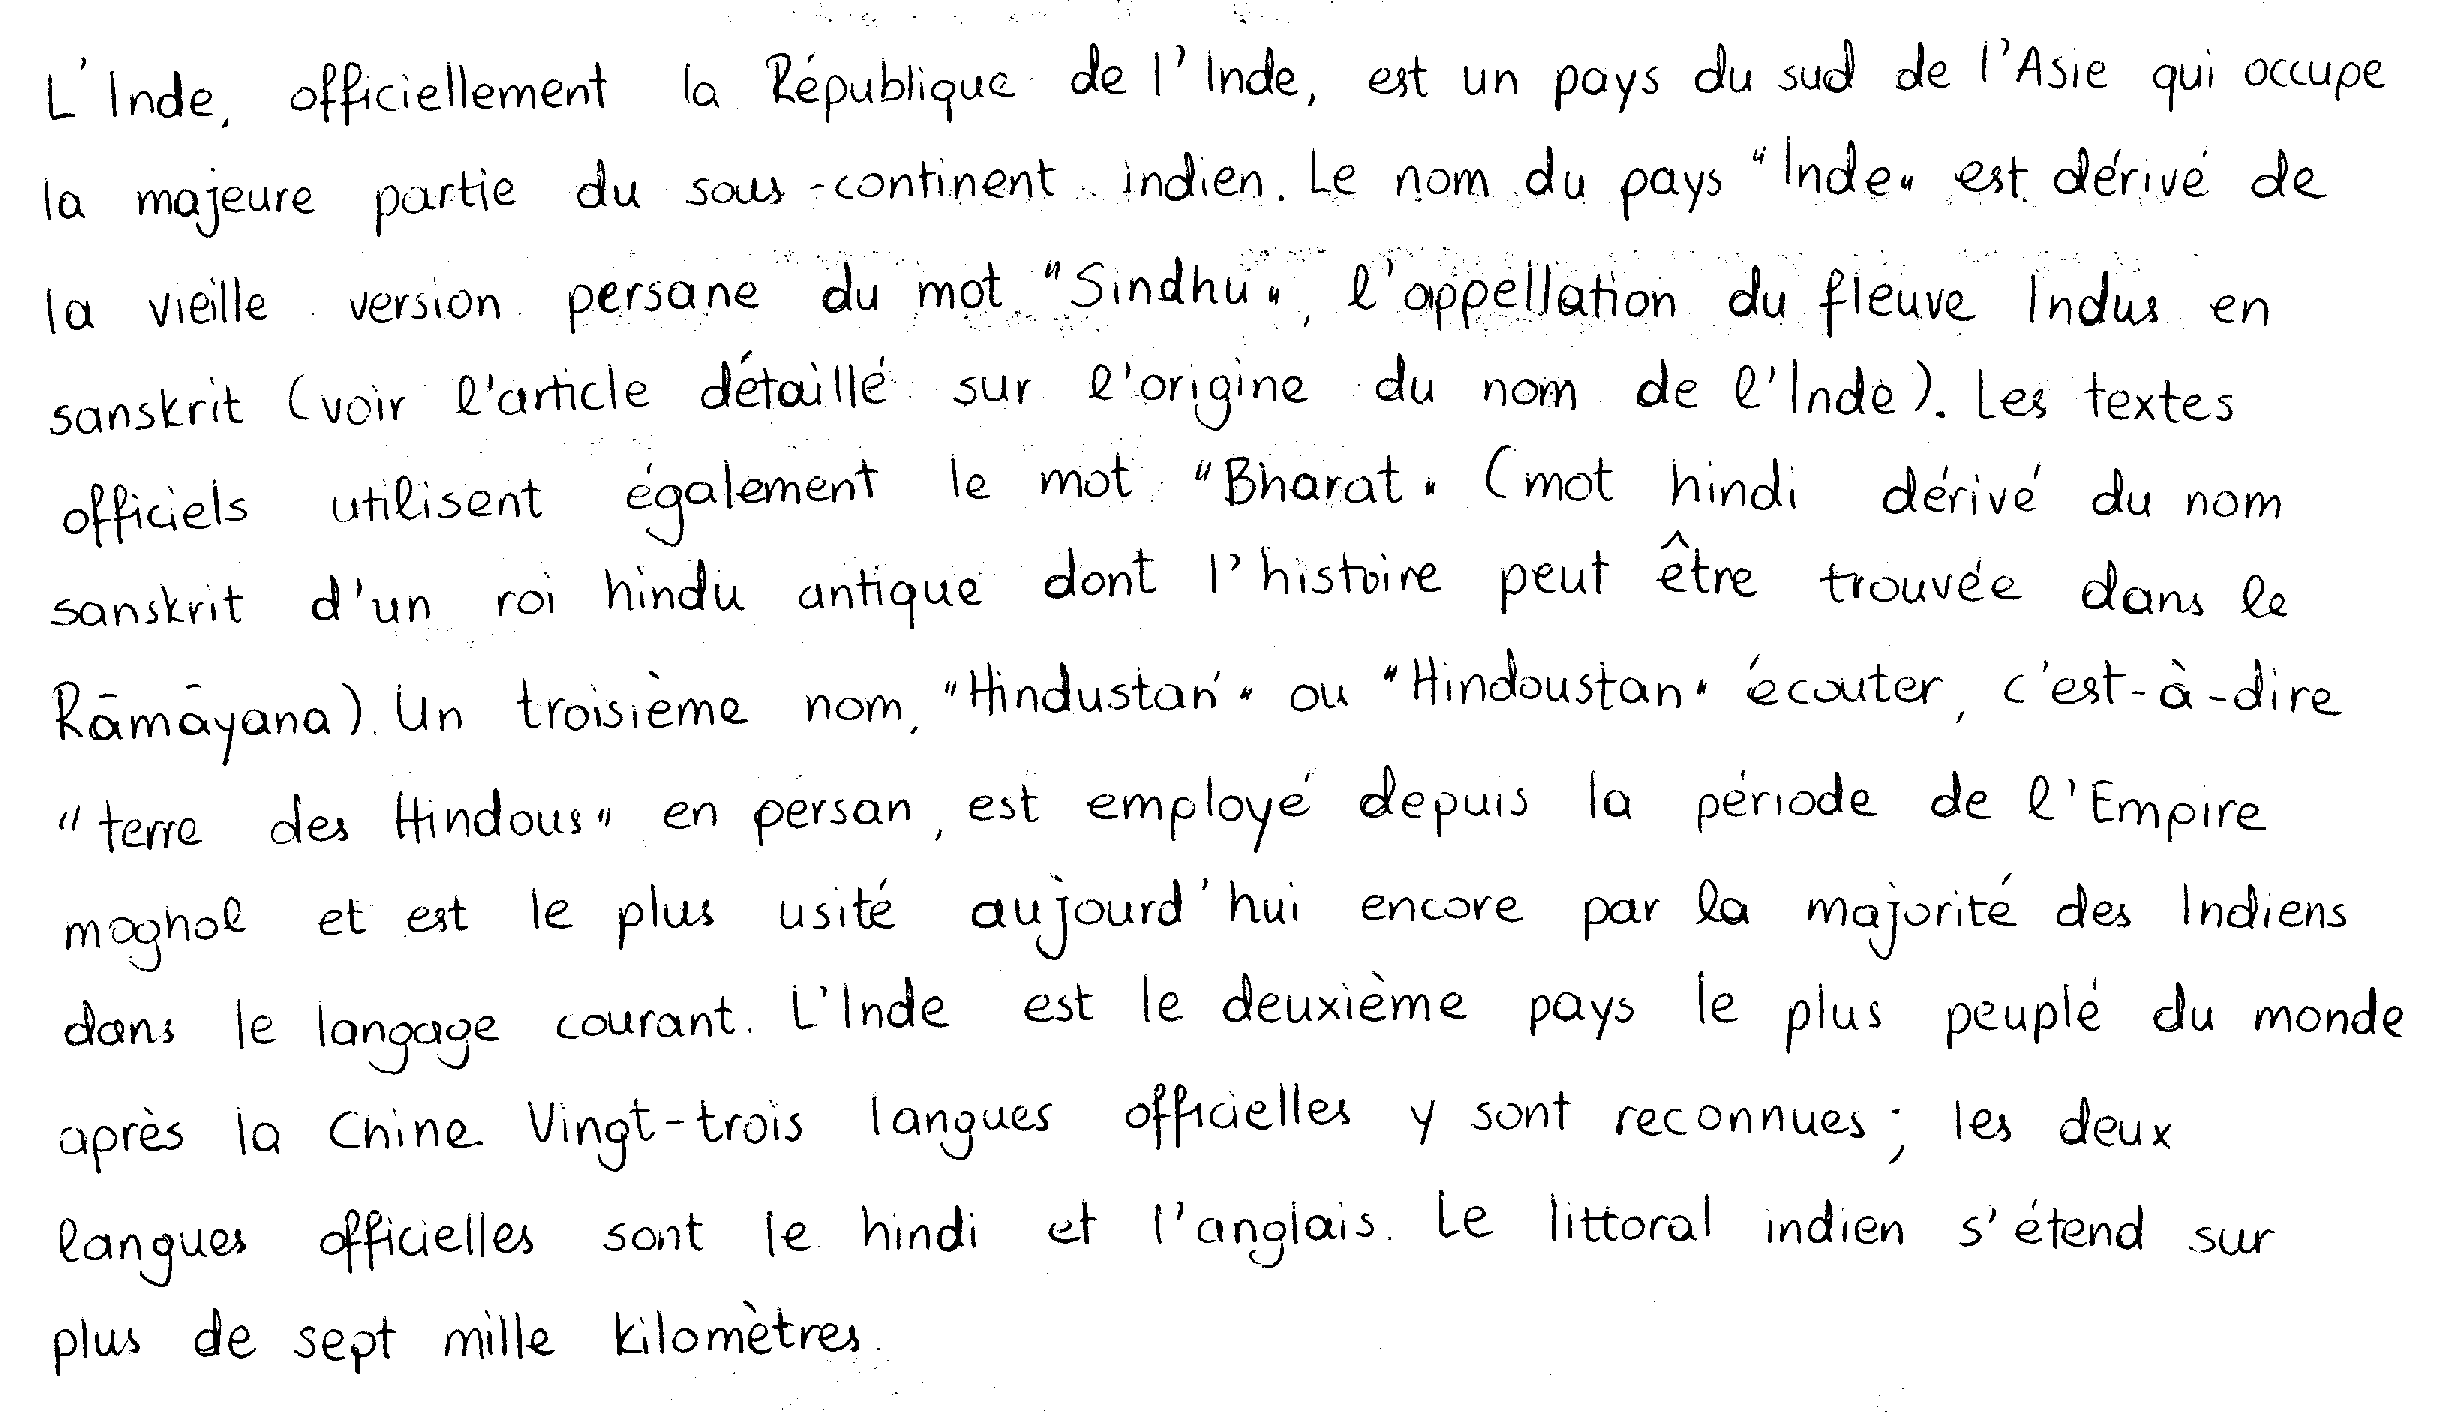 L'Inde, officiellement la République de l'Inde, est un pays du sud de l'Asie qui occupe
la majeure partie du sous-continent indien. Le nom du pays "Inde" est dérivé de
la vieille version persane du mot "Sindhu", l'appellation du fleuve Indus en
sanskrit (voir l'article détaillé sur l'origine du nom de l'Inde). Les textes
officiels utilisent également le mot "Bharat" (mot hindi dérivé du nom
sanskrit d'un roi hindu antique dont l'histoire peut être trouvée dans le
Rāmāyana). Un troisième nom, "Hindustan" ou "Hindoustan" écouter, c'est-à-dire
"terre des Hindous" en persan, est employé depuis la période de l'Empire
moghol et est le plus usité aujourd'hui encore par la majorité des Indiens
dans le langage courant. L'Inde est le deuxième pays le plus peuplé du monde
après la Chine. Vingt-trois langues officielles y sont reconnues ; les deux
langues officielles sont le hindi et l'anglais. Le littoral indien s'étend sur
plus de sept mille kilomètres.